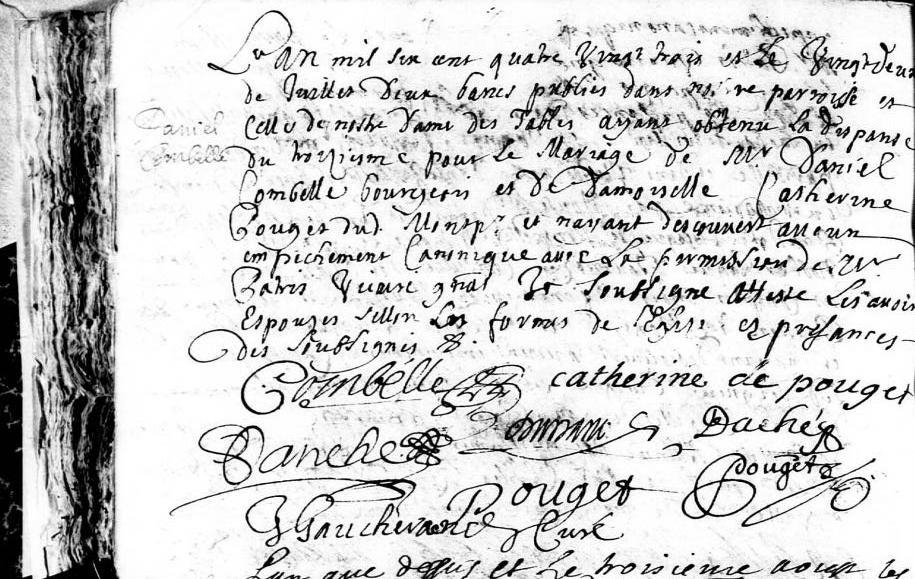 L'an mil six cent quatre vingt trois et le vingt deux
de Juillet deux bancs publies dans nostre parroisse et
celle de nostre dame des Tables ayant obtenu la dispanse
Daniel
Combelle
du troiziesme pour le Mariage de Mr Daniel
Combelle bourgeois et de damoiselle Catherine
Pouget dud. Montpr et nayant descouvert aucun
empechement Canonique avec La permission de Mr
Patris vicaire gnãl Je soubsigne atteste Les avoir
Espouzes sellon Les formes de l'Eglise es presances
des soubsignes
Combelle catherine de pouget
Dachez
Pouget pouget
Gaucherand Cure
L'an que dessus et Le troisieme aoust